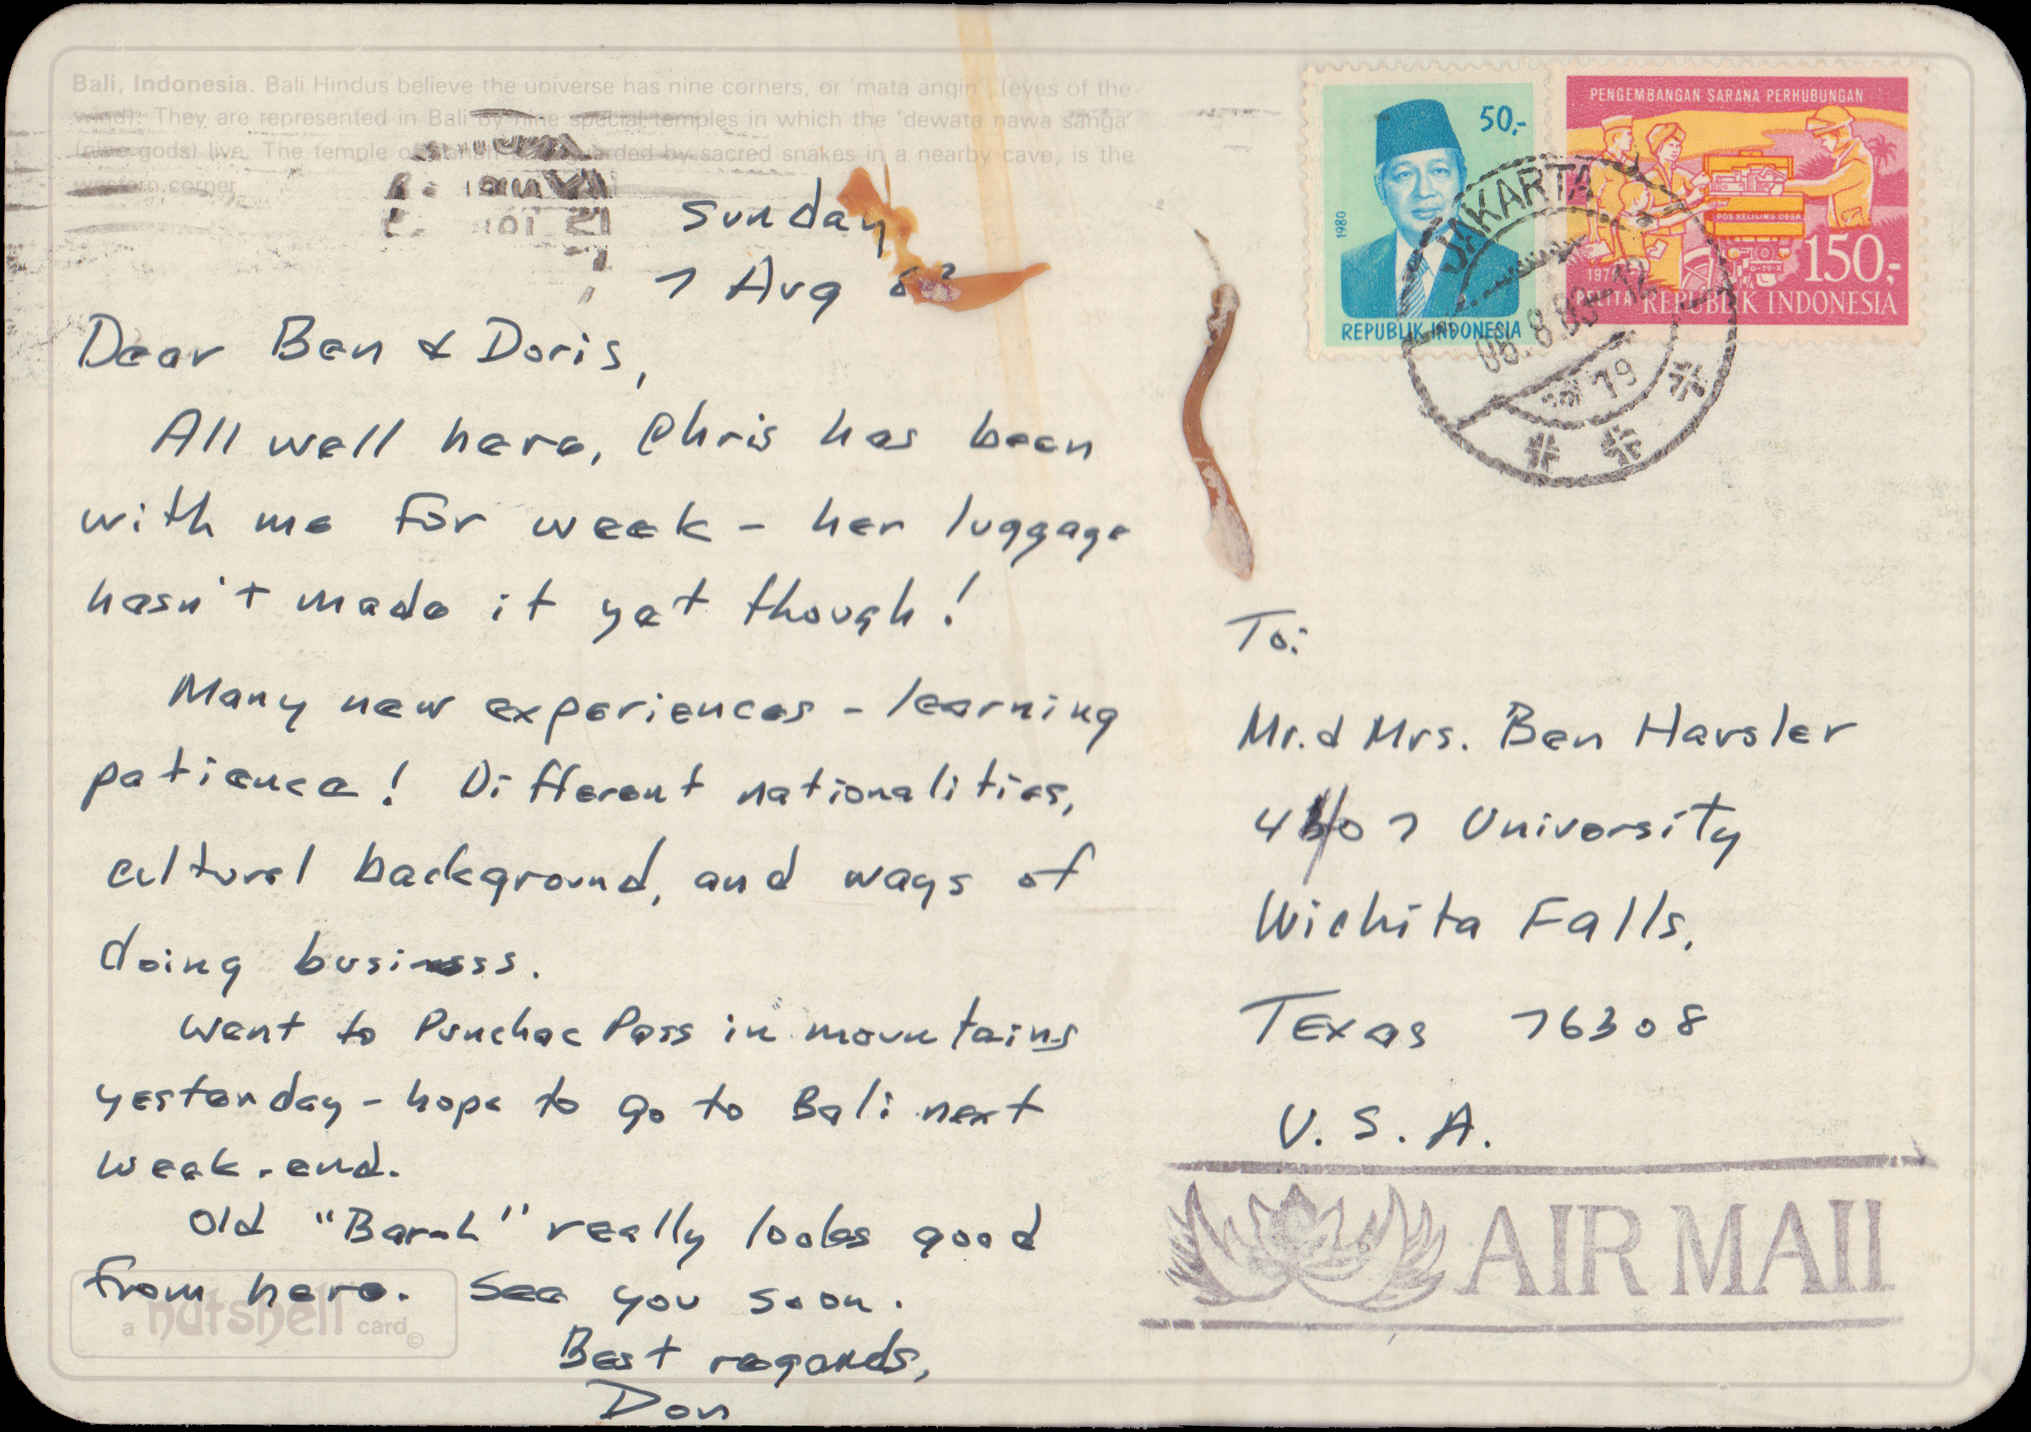 Bali, Indonesia. Bali Hindus believe the universe has nine corners, or 'mata angin' (eyes of the
wind). They are represented in Bali by nine special temples in which the 'dewata nawa sanga'
(nine gods) live. The temple of guarded by sacred snakes in a nearby cave, is the
western corner.
Sunday
7 Aug
Dear Ben & Doris,
All well here, Chris has been
with me for week - her luggage
hasn't made it yet though!
Many new experiences - learning
patience! Different nationalities,
cultural background, and ways of
doing business.
Went to Punchac Pass in mountains
yesterday - hope to go to Bali next
week-end.
Old "Bar-h" really looks good
from here. See you soon.
Best regards,
Don
a nutshell card ©
50,-
1980
REPUBLIK INDONESIA
PENGEMBANGAN SARANA PERHUBUNGAN
POS KELILING DESA
150,-
PELITA REPUBLIK INDONESIA
JAKARTA
06.8.83-12
19
To:
Mr. & Mrs. Ben Hausler
07 University
Wichita Falls,
Texas 76308
U.S.A.
AIR MAIL